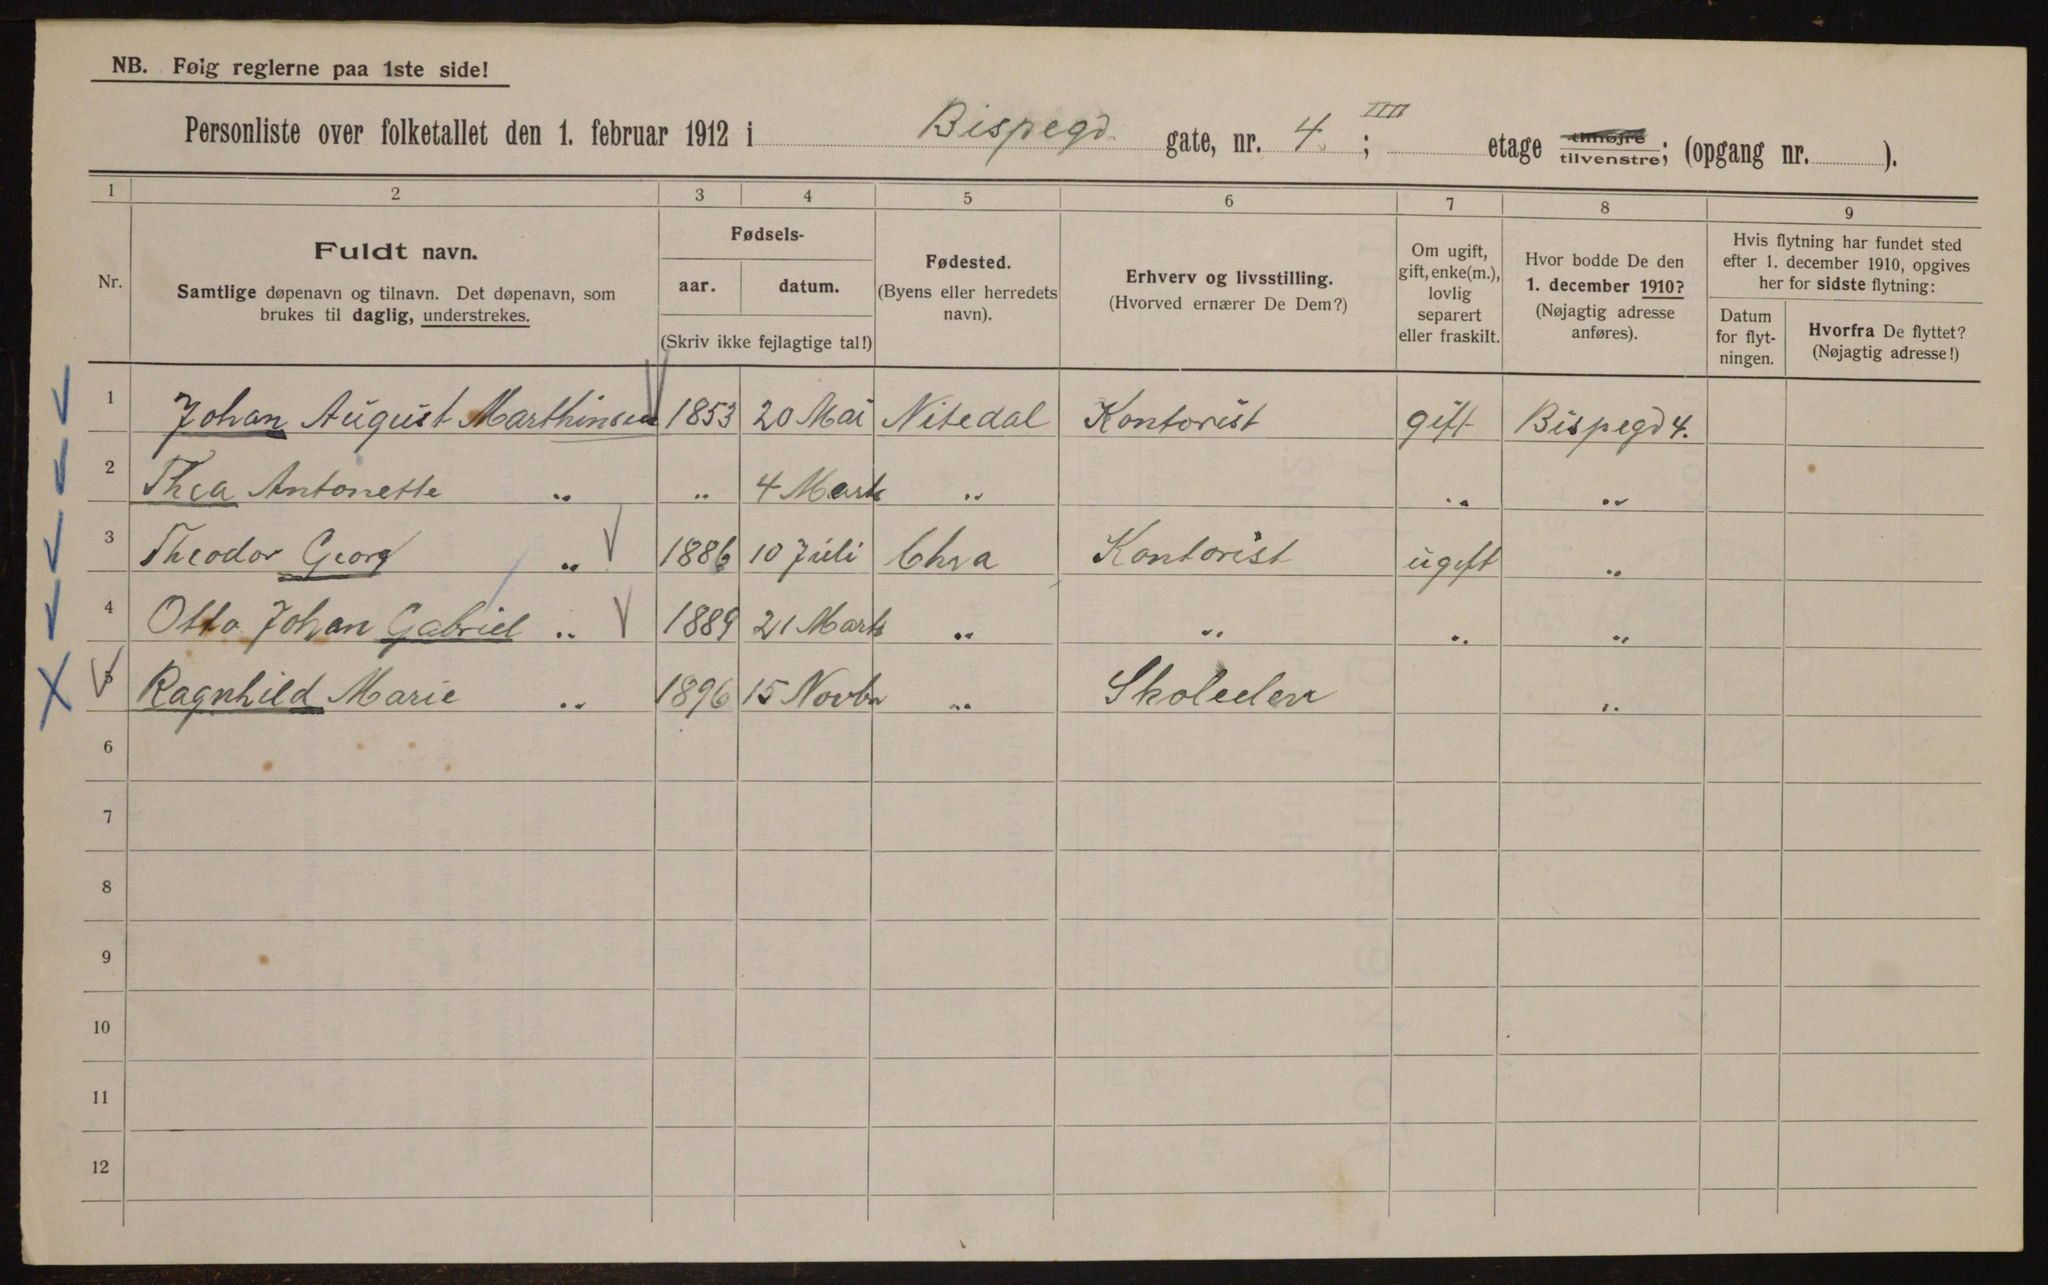 NB. Følg reglerne paa 1ste side!
Personliste over folketallet den 1. februar 1912 i Bispegd. gate, nr. 4 ; IIII etage tilhøjre tilvenstre; (opgang nr. ).
1 2 3 4 5 6 7 8 9
Nr.
Fuldt navn.
Samtlige døpenavn og tilnavn. Det døpenavn, som
brukes til daglig, understrekes.
Fødsels-
aar. datum.
(Skriv ikke fejlagtige tal!)
Fødested.
(Byens eller herredets
navn).
Erhverv og livsstilling.
(Hvorved ernærer De Dem?)
Om ugift,
gift, enke(m.),
lovlig
separert
eller fraskilt.
Hvor bodde De den
1. december 1910?
(Nøjagtig adresse
anføres).
Hvis flytning har fundet sted
efter 1. december 1910, opgives
her for sidste flytning:
Datum
for flyt-
ningen.
Hvorfra De flyttet?
(Nøjagtig adresse!)
1 Johan August Marthinsen 1853 20 Mai Nitedal Kontorist gift Bispegd 4.
2 Thea Antonette „ „ 4 Marts „ „ „
3 Theodor Georg „ 1886 10 Juli Chra Kontorist ugift „
4 Otto Johan Gabriel „ 1889 21 Marts „ „ „ „
5 Ragnhild Marie „ 1896 15 Novbr „ Skoleelev „
6
7
8
9
10
11
12